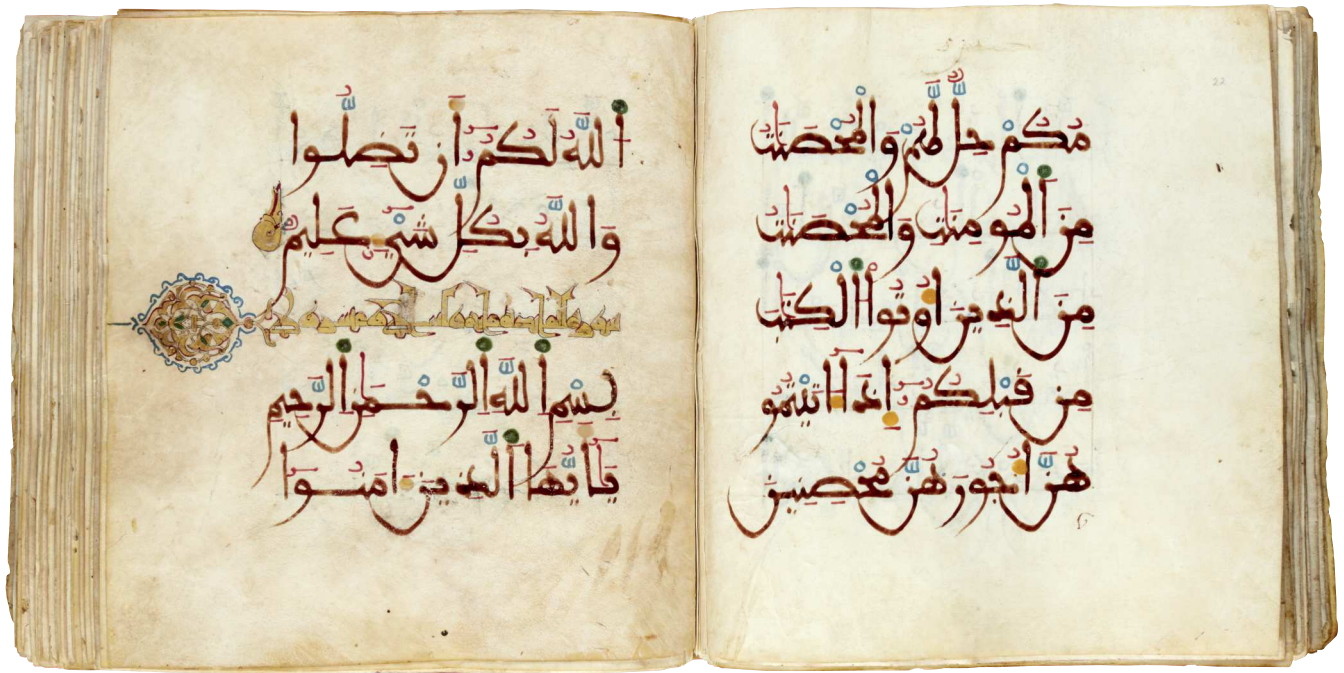 مُكُمْ حِلٌّ لَّهُمْ وَالْمُحْصَنَٰتُ
مِنَ ٱلْمُومِنَٰتِ وَالْمُحْصَنَٰتُ
مِنَ ٱلَّذِينَ أُوتُوا ٱلْكِتَٰبَ
مِن قَبْلِكُمُۥ إِذَا ءَاتَيْتُمُو
هُنَّ أُجُورَهُنَّ مُحْصِنِينَ
ٱللَّهُ لَكُمُۥ أَن تَضِلُّوا
وَاللَّهُ بِكُلِّ شَيْءٍ عَلِيمٌ
سورة المائدة
بِسْمِ ٱللَّهِ ٱلرَّحْمَٰنِ ٱلرَّحِيمِ
يَٰأَيُّهَا ٱلَّذِينَ ءَامَنُوا